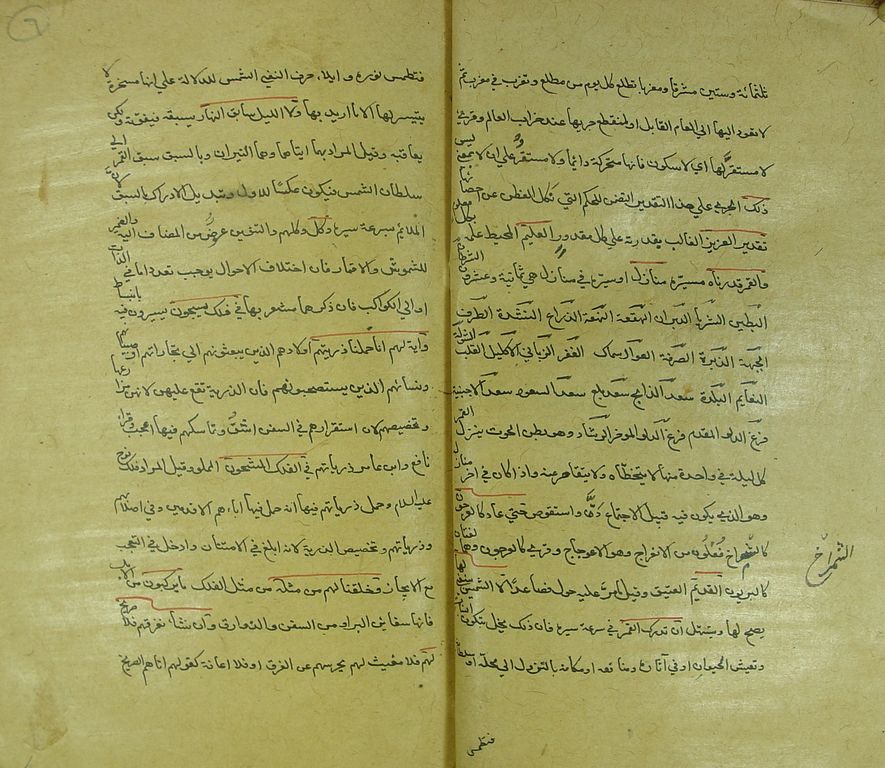 ثلثمائة وستين مشرقا ومغربا تطلع كل يوم من مطلع وتغرب في مغرب ثم
لا تعود اليها الى العام القابل او لمنقطع جريها عند خراب العالم وقرئ
لا مستقر لها اي لا سكون فانها متحركة دائما ولا مستقر على ان لا بمعنى ليس
ذلك الجري على هذا التقدير المتضمن للحكم التي تكل الفطن عن احصائها
تقدير العزيز الغالب بقدرته على كل مقدور العليم المحيط علمه بكل معلوم
والقمر قدرناه مسيره منازل او سيره في منازل هي ثمانية وعشرون الشرطان
البطين الثريا الدبران الهقعة الهنعة الذراع النثرة الطرف
الجبهة الزبرة الصرفة العوا السماك الغفر الزباني الاكليل القلب الشولة
النعايم البلدة سعد الذابح سعد بلع سعد السعود سعد الاخبية
فرغ الدلو المقدم فرغ الدلو الموخر الرشاء وهو بطن الحوت ينزل القمر
كل ليلة في واحدة منها لا يتخطاه ولا يتقاصر عنه فاذا كان في اخر منازله
وهو الذي يكون فيه قبيل الاجتماع دق واستقوس حتى عاد كالعرجون
كالشمراخ فعلون من الانعراج وهو الاعوجاج وقرئ كالعرجون وهما لغتان
كالبزيون القديم العتيق وقيل ما مر عليه حول فصاعدا لا الشمس ينبغي لها
يصح لها ويتسهل ان تدرك القمر في سرعة سيره فان ذلك يخل بتكون النبات
وتعيش الحيوان او في آثاره ومنافعه او مكانه بالنزول الى محله او سلطانه
الشمراخ
فتطمس
فتطمس نوره وايلاء حرف النفي الشمس للدلالة على انها مسخرة لا
يتيسر لها الا ما اريد بها ولا الليل سابق النهار يسبقه فيفوته ولكن
يعاقبه وقيل المراد بهما ايتاهما وهما النيران وبالسبق سبق القمر الى
سلطان الشمس فيكون عكسا للاول وتبديل الادراك بالسبق لانه
الملائم لسرعة سيره وكل وكلهم والتنوين عوض من المضاف اليه والضمير
للشموس والاقمار فان اختلاف الاحوال يوجب تعددا ما في الذات
او الى الكواكب فان ذكرهما مشعر بها في فلك يسبحون يسيرون فيه بانبساط
وآية لهم انا حملنا ذريتهم اولادهم الذين يبعثونهم الى تجاراتهم او صبيانهم
ونسائهم الذين يستصحبونهم فان الذرية تقع عليهن لانهن مزارعها
وتخصيصهم لان استقرارهم في السفن اشق وتماسكهم فيها اعجب وقرأ
نافع وابن عامر ذرياتهم في الفلك المشحون المملو وقيل المراد فلك نوح
عليه السلام وحمل ذرياتهم فيها انه حمل فيها آباءهم الاقدمين وفي اصلابهم
وذرياتهم وتخصيص الذرية لانه ابلغ في الامتنان وادخل في التعجب
مع الايجاز وخلقنا لهم من مثله من مثل الفلك ما يركبون من الابل
فانها سفاين البر او من السفن والزوارق وان نشأ نغرقهم فلا صريخ
لهم فلا مغيث لهم يحرسهم عن الغرق او فلا اعانة كقولهم اتاهم الصريخ